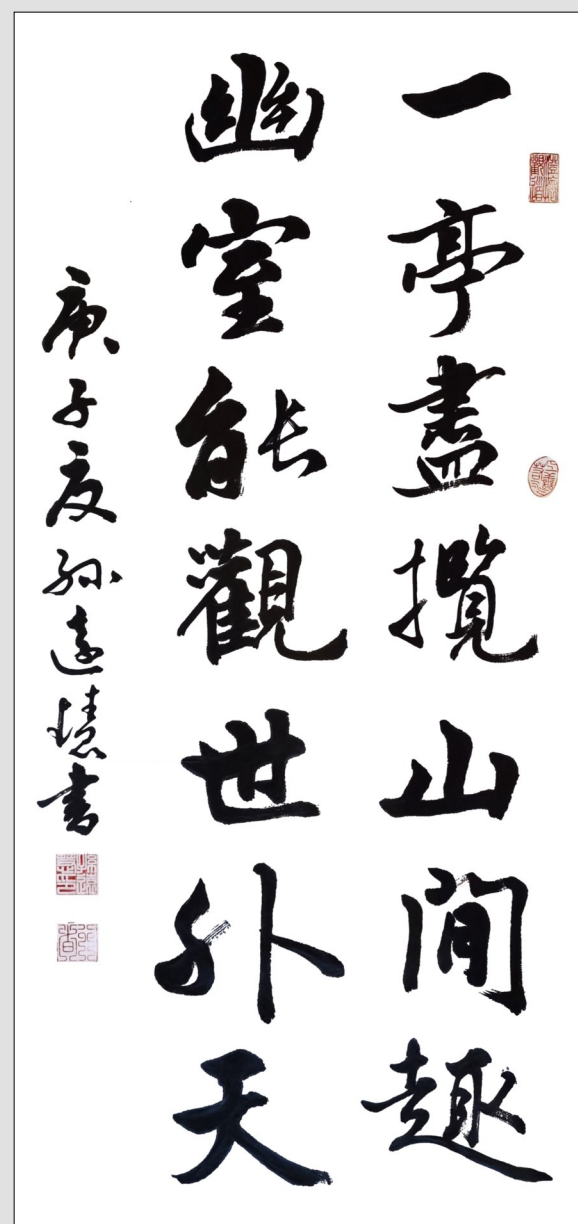 一亭盡攬山間趣
幽室能觀世外天
庚子夏孫遠慧書